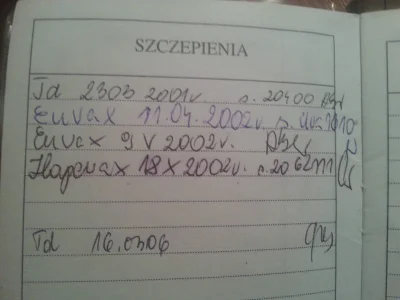 SZCZEPIENIA
Td 2303 2001r. s. 20400
Euvax 11.04.2002r. s.
Euvax 9 V 2002r.
Hepavax 18 X 2002r. s. 2062
Td 16.0306